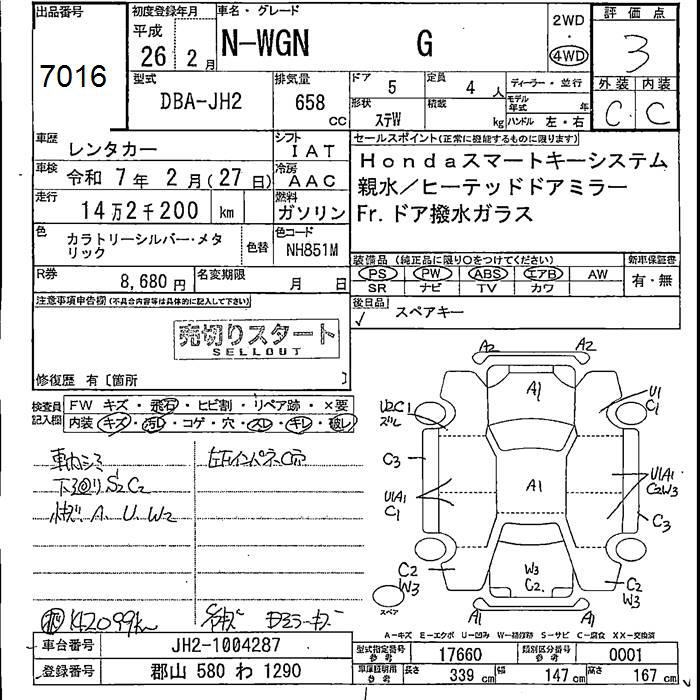 出品番号
7016
初度登録年月
平成
26 2 月
車名・グレード
N-WGN G
2WD
・
4WD
評価点
3
外装 内装
C C
型式
DBA-JH2
排気量
658
CC
ドア 5
定員 4 人
形状 ステW
積載 kg
ディーラー・並行
モデル年式 年
ハンドル 左・右
車歴 レンタカー
シフト IAT
車検 令和 7 年 2 月(27 日)
冷房 AAC
走行 14万2千200 km
燃料 ガソリン
色 カラトリーシルバー・メタリック
色替
色コード NH851M
R券 8,680 円
名変期限 月 日
セールスポイント(正常に機能するものに限ります)
Hondaスマートキーシステム
親水/ヒーテッドドアミラー
Fr.ドア撥水ガラス
装備品(純正品に限り○をつけてください)
PS PW ABS エアB AW
SR ナビ TV カワ
新車保証書
有・無
後日品
✓ スペアキー
注意事項申告欄(不具合内容等は具体的に記入して下さい)
売切りスタート
SELLOUT
修復歴 有〔箇所 〕
検査員記入欄
FW キズ・飛石・ヒビ割・リペア跡・×要
内装 キズ・汚レ・コゲ・穴・スレ・キレ・破レ
下廻りS2C2
A. U. W2
142099km
A2 A2
A1
U2C1
ズレ
U1
C1
C3
U1A1
C1
A1
U1A1
C2W3
C3
C2
W3
W3
C2.
C2
W3
スペア
A2 A2
A−キズ E−エクボ U−凹み W−補修跡 S−サビ C−腐食 XX−交換済
車台番号 JH2-1004287
登録番号 郡山 580 わ 1290
型式指定番号 参考 17660
類別区分番号 参考 0001
車庫証明用 参考
長さ 339 cm
幅 147 cm
高さ 167 cm